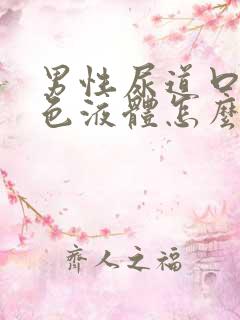 男性尿道口
色液體怎麼
齊人之福